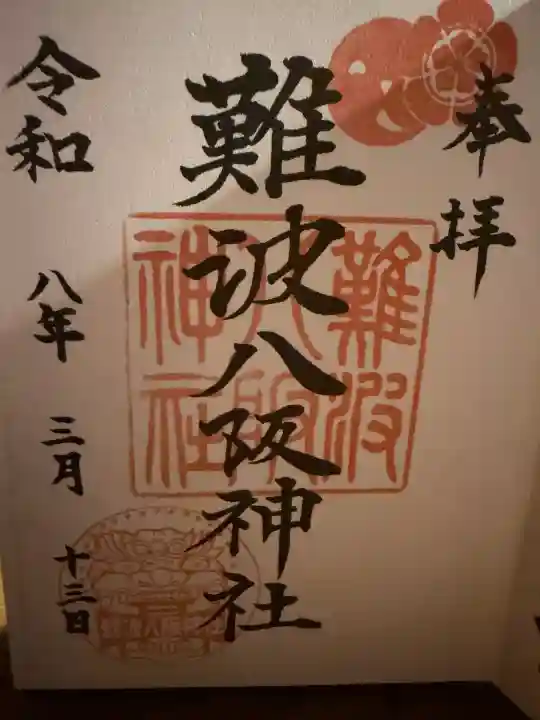 奉拝
難波八阪神社
難波
八阪
神社
令和 八年 三月 十三日